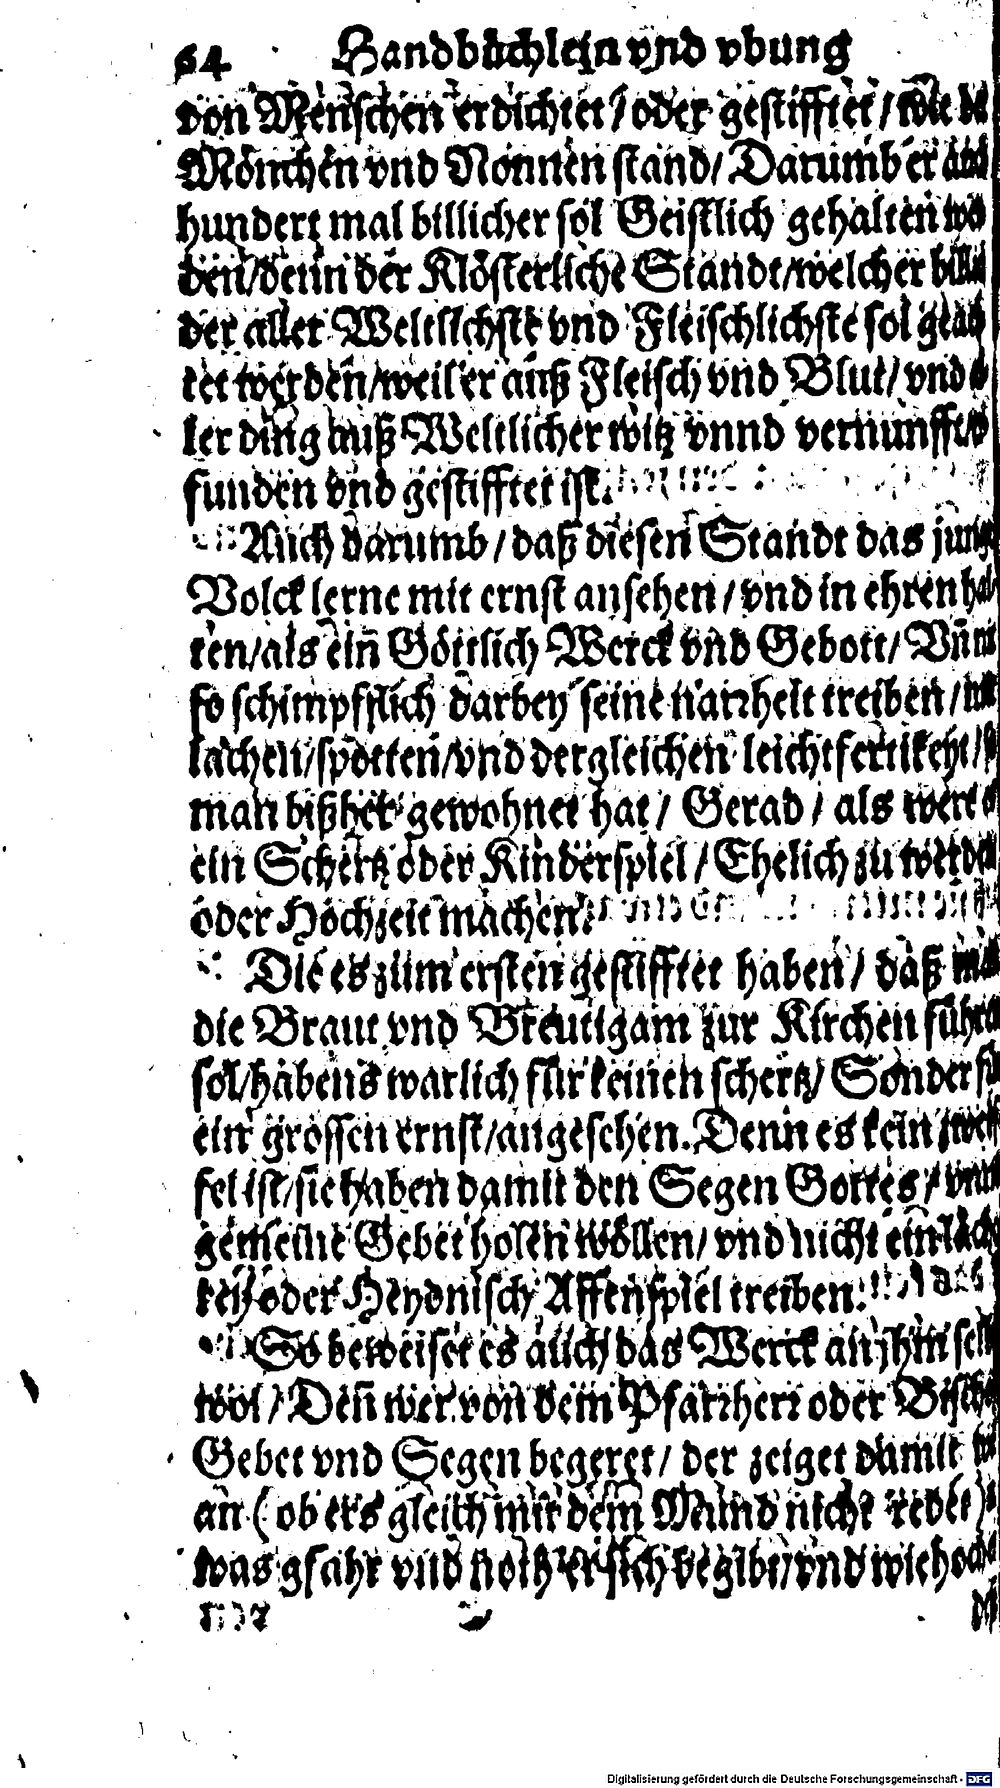 64 Handbüchlein vnd vbung
von Menschen erdichtet / oder gestifftet / wie
Mönchen vnd Nonnen stand / Darumb er
hundert mal billicher sol Geistlich gehalten
den / denn der Klösterliche Standt / welcher
der aller Weltlichste vnd Fleischlichste sol
tet werden / weil er auß Fleisch vnd Blut / vnd
ler ding auß Weltlicher witz vnnd vernunfft
funden vnd gestifftet ist.
Auch darumb / daß diesen Standt das
Volck lerne mit ernst ansehen / vnd in ehren
ten / als ein Göttlich Werck vnd Gebott / Vñ
so schimpfflich darbey seine narrheit treiben /
lachen / spotten / vnd dergleichen leichtfertikeyt /
man bißher gewohnet hat / Gerad / als were
ein Schertz oder Kinderspiel / Ehelich zu
oder Hochzeit machen.
Die es zum ersten gestifftet haben / daß
die Braut vnd Breutigam zur Kirchen
sol / habens warlich für keinen schertz / Sonder
ein grossen ernst / angesehen. Denn es kein
fel ist / sie haben damit den Segen Gottes /
gemeine Gebet holen wöllen / vnd nicht ein
rey oder Heydnisch Affenspiel treiben.
So beweiset es auch das Werck an jhm
wol / Deñ wer von dem Pfarrherr oder
Gebet vnd Segen begeret / der zeiget damit
an (ob ers gleich mit dem Mund nicht redet)
was gfahr vnd noth er sich begibt / vnd wie
Digitalisierung gefördert durch die Deutsche Forschungsgemeinschaft - DFG